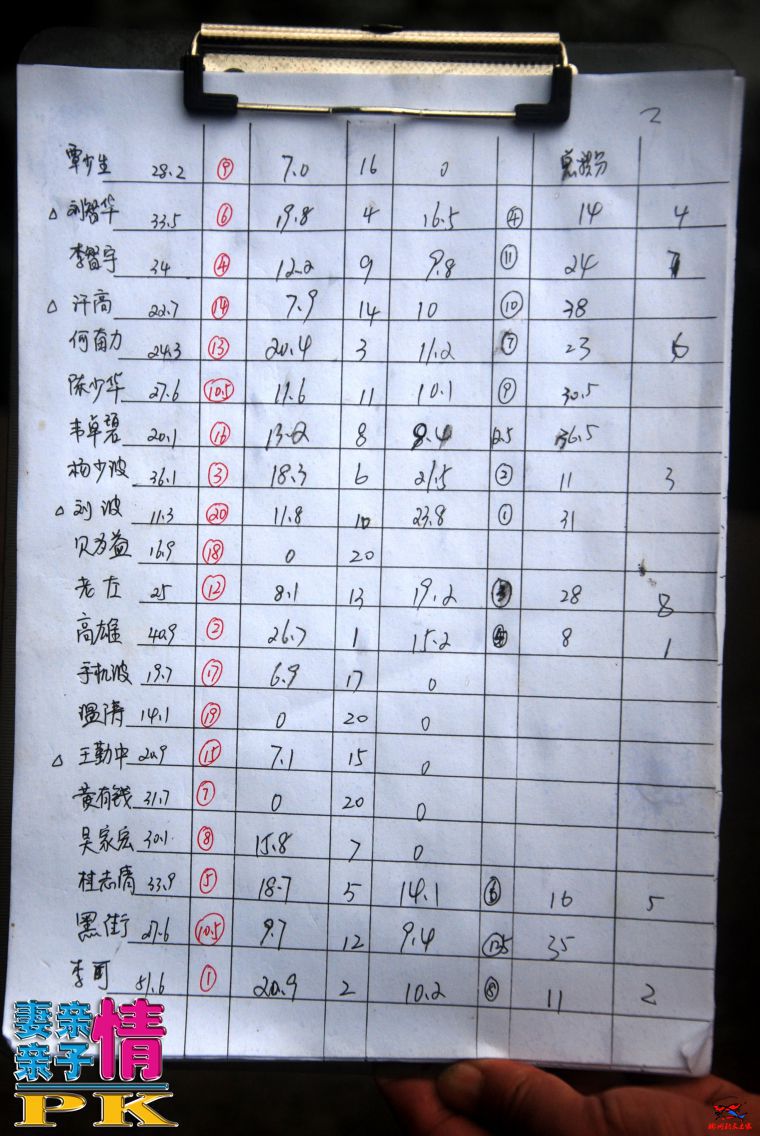 2
覃少生 28.2 ⑨ 7.0 16 0 总积分
△ 刘智华 33.5 ⑥ 19.8 4 16.5 ④ 14 4
李智宇 34 ④ 12.2 9 9.8 ⑪ 24 7
△ 许高 22.7 ⑭ 7.9 14 10 ⑩ 38
何奋力 24.3 ⑬ 20.4 3 11.2 ⑦ 23 6
陈少华 27.6 10.5 11.6 11 10.1 ⑨ 30.5
韦卓碧 20.1 ⑯ 13.2 8 9.4 12.5 36.5
杨少波 36.1 ③ 18.3 6 21.5 ② 11 3
△ 刘波 11.3 ⑳ 11.8 10 23.8 ① 31
贝为益 16.9 ⑱ 0 20
老左 25 ⑫ 8.1 13 19.2 ③ 28 8
高雄 40.9 ② 26.7 1 15.2 ⑤ 8 1
手机波 19.7 ⑰ 6.9 17 0
温涛 14.1 ⑲ 0 20 0
△ 王勤中 20.9 ⑮ 7.1 15 0
黄有钱 31.7 ⑦ 0 20 0
吴家宏 30.1 ⑧ 15.8 7 0
桂志清 33.9 ⑤ 18.7 5 14.1 ⑥ 16 5
黑街 27.6 10.5 9.7 12 9.4 12.5 35
李可 51.6 ① 20.9 2 10.2 ⑧ 11 2
妻亲情
亲子
PK